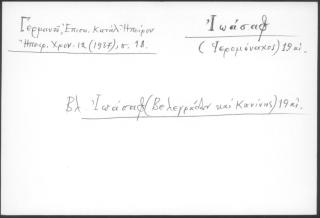 Γερμανοῦ, Ἐπισκ. Κατάλ. Ἠπείρου
Ἠπειρ. Χρον. 12 (1937), σ. 18.
Ἰωάσαφ
(Ἱερομόναχος) 19 αἰ.
Βλ. Ἰωάσαφ (Βελεγράδων καὶ Κανίνης) 19 αἰ.